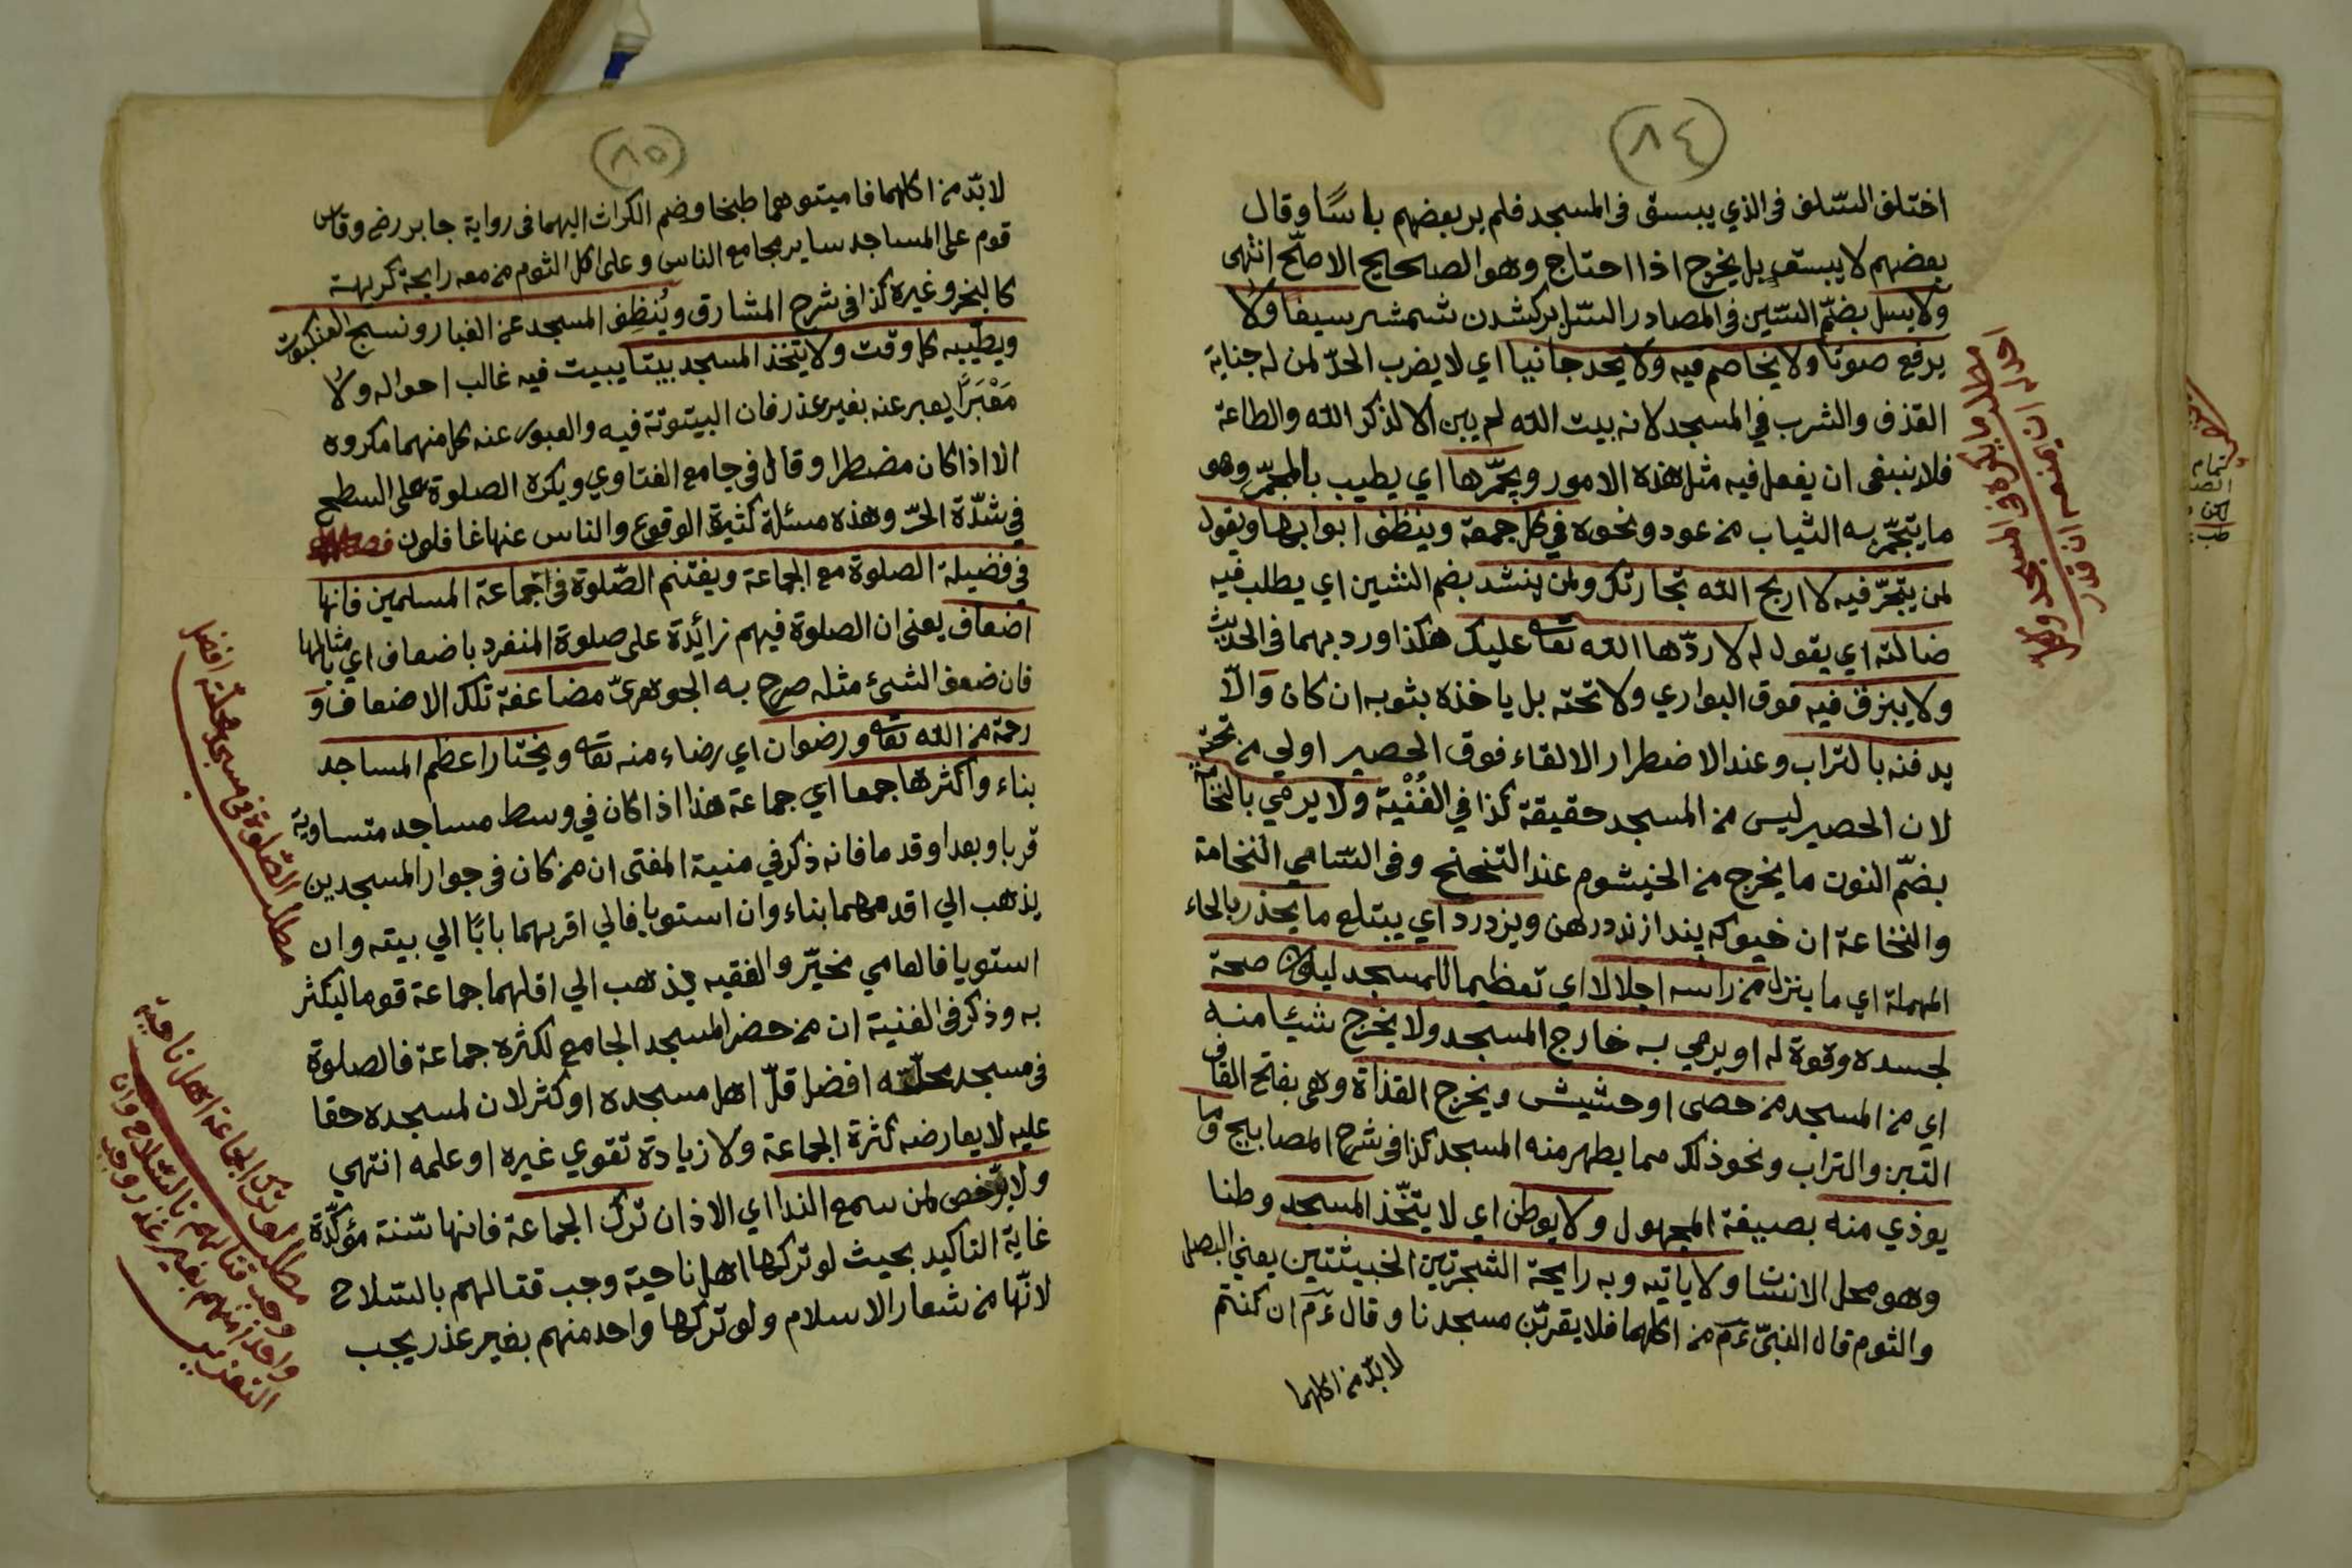 ٨٤
اختلف السّلف فى الذي يبسق فى المسجد فلم ير بعضهم باسًا وقال
بعضهم لا يبسق بل يخرج اذا احتاج وهو الصحيح الاصحّ انتهى
ولا يسل بضمّ السّين فى المصادر السّل بركشدن شمشر سيفا ولا
يرفع صوتا ولا يخاصم فيه ولا يحد جانيا اي لا يضرب الحدّ لمن له جناية
القذف والشرب في المسجد لانه بيت الله لم يبن الا لذكر الله والطاعة
فلا ينبغى ان يفعل فيه مثل هذه الامور ويجمّرها اي يطيب بالمجمّر وهو
ما يتجمّر به الثياب من عود ونحوه في كل جمعة وينظف ابوابها ويقول
لمن يتجّر فيه لا اربح الله تجارتك ولمن ينشد بضم الشين اي يطلب فيه
ضالته اي يقول له لا ردّها الله تعا عليك هكذا ورد بهما فى الحديث
ولا يبزق فيه فوق البواري ولا تحته بل ياخذه بثوبه ان كان والّا
يدفنه بالتراب وعند الاضطرار الالقاء فوق الحصير اولي من تحته
لان الحصير ليس من المسجد حقيقة كذا في القُنْية ولا يرمي بالنخامة
بضمّ النون ما يخرج من الخيشوم عند التنحنح وفى السّامي النخامة
والنخاعة ان خيوكه بنداز ندرهن ويزدرد اي يبتلع ما يحذر بالحاء
المهملة اي ما ينزل من راسه اجلالا اي تعظيما للمسجد ليكون صحة
لجسده وقوة له او يرمي به خارج المسجد ولا يخرج شيئا منه
اي من المسجد من حصى او حشيش ويخرج القذاة وهى بفتح القاف
التبن والتراب ونحو ذلك مما يطهر منه المسجد كذا فى شرح المصابيح وما
يوذي منه بصيغة المجهول ولا يوطن اي لا يتّخذ المسجد وطنا
وهو محل الانسا ولا ياتيه وبه رايحة الشجرتين الخبيثتين يعني البصل
والثوم قال النبىّ عم من اكلهما فلا يقربّن مسجدنا وقال عم ان كنتم
لا بدّ من اكلهما
٨٥
لا بدّ من اكلهما فاميتوهما طبخا وضم الكراث اليهما فى رواية جابر رض وقاس
قوم على المساجد ساير مجامع الناس وعلى اكل الثوم من معه رايحة كريهة
كالبخر وغيره كذا فى شرح المشارق ويُنظِف المسجد عن الغبار ونسج العنكبوت
ويطيّبه كل وقت ولا يتّخذ المسجد بيتا يبيت فيه غالب احواله ولا
مَعْبَرًا يعبر عنه بغير عذر فان البيتوتة فيه والعبور عنه كل منهما مكروه
الا اذا كان مضطرا وقال فى جامع الفتاوي ويكره الصلوة على السطح
في شدّة الحرّ وهذه مسئلة كثيرة الوقوع والناس عنها غافلون فصل
في فضيلة الصلوة مع الجماعة ويغتنم الصّلوة فى جماعة المسلمين فانها
اضعاف يعنى ان الصلوة فيهم زائدة على صلوة المنفرد باضعاف اي بامثالها
فان ضعف الشىئ مثله صرح به الجوهرىّ مضاعفة تلك الاضعاف و
رحمة من الله تعا ورضوان اي رضاء منه تعا ويختار اعظم المساجد
بناء واكثرها جمعا اي جماعة هذا اذا كان في وسط مساجد متساوية
قربا وبعدا وقدما فانه ذكر في منية المفتى ان من كان فى جوار المسجدين
يذهب الي اقدمهما بناء وان استويا فالي اقربهما بابًا الي بيته وان
استويا فالعامي مخيّر والفقيه يذهب الي اقلهما جماعة قوما ليكثر
به وذكر فى القنية ان من حضر المسجد الجامع لكثرة جماعة فالصلوة
فى مسجد محلّته افضل قلّ اهل مسجده او كثر لان لمسجده حقا
عليه لا يعارضه كثرة الجماعة ولا زيادة تقوي غيره او علمه انتهي
ولا يرخص لمن سمع الندا اي الاذان ترك الجماعة فانها سّنة مؤكّدة
غاية التاكيد بحيث لو تركها اهل ناحية وجب قتالهم بالسّلاح
لانّها من شعار الاسلام ولو تركها واحد منهم بغير عذر يجب
مطلب الصّلوة فى مسجد محلّته افضل
مطلب لو ترك الجماعة اهل ناحية
وجب قتالهم بالسّلاح وان
واحد منهم بغير عذر وجب
التعزير